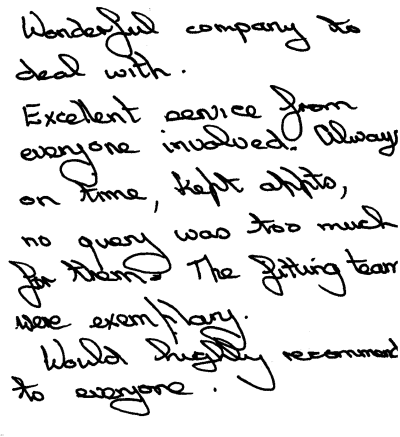 Wonderful company to
deal with.
Excellent service from
everyone involved. Always
on time, kept appts,
no query was too much
for them. The fitting team
were exemplary.
Would highly recommend
to everyone.